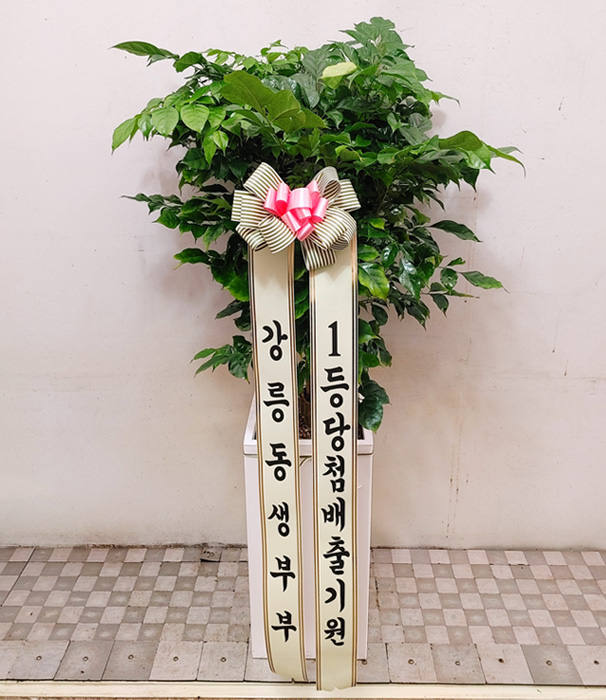 1등당첨배출기원
강릉동생부부